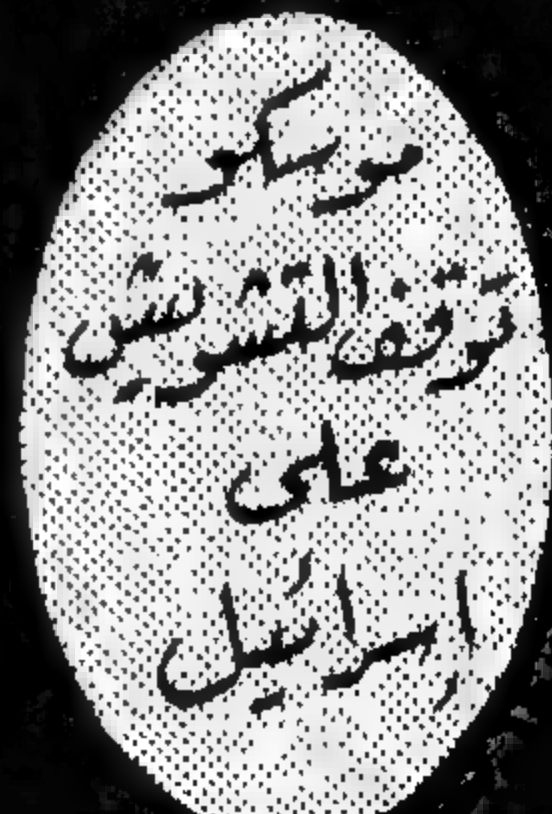 موسكو
توقف التشويش
على
إسرائيل